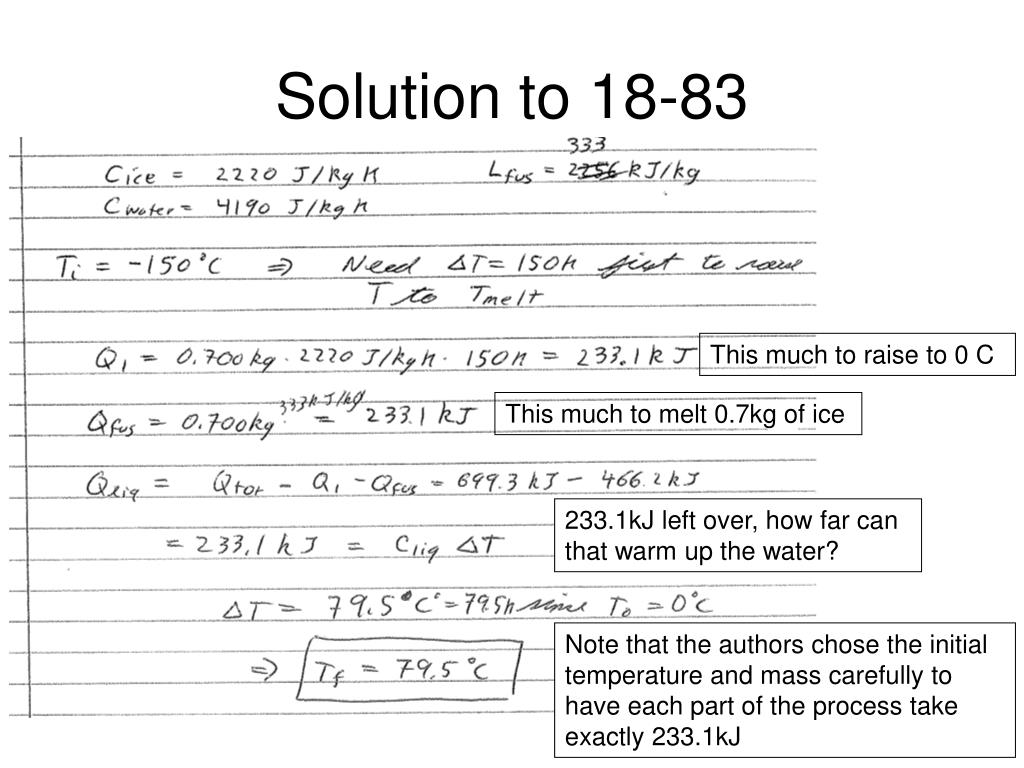 Solution to 18-83
333
Cice = 2220 J/kg K Lfus = 2256 kJ/kg
Cwater = 4190 J/kg K
Ti = -150°C ⇒ Need ΔT = 150K first to raise
T to Tmelt
Q1 = 0.700 kg · 2220 J/kg K · 150K = 233.1 kJ
This much to raise to 0 C
333kJ/kg
Qfus = 0.700kg · = 233.1 kJ
This much to melt 0.7kg of ice
Qliq = Qtot - Q1 - Qfus = 699.3 kJ - 466.2 kJ
233.1kJ left over, how far can
that warm up the water?
= 233.1 kJ = Cliq ΔT
ΔT = 79.5°C = 79.5K since To = 0°C
⇒ Tf = 79.5°C
Note that the authors chose the initial
temperature and mass carefully to
have each part of the process take
exactly 233.1kJ